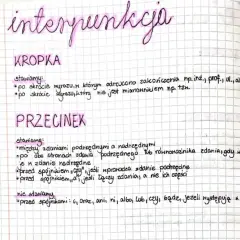 interpunkcja
KROPKA
stawiamy:
• po skrócie wyrazu, w którym odrzucono zakończenie np. inż., prof., ul., al.
• po skrócie wyrazu, który nie jest mianownikiem np.
PRZECINEK
stawiamy:
• między zdaniami podrzędnymi a nadrzędnymi
• po obu stronach zdania podrzędnego lub równorzędnie zdania, gdy
w zdanie nadrzędne
• przed spójnikiem, jeśli wprowadza zdanie podrzędne
• przed spójnikiem a, jeśli łączy zdania, a nie ich części
nie stawiamy
• przed spójnikami: i, oraz, ani, ni, albo, lub, czy, bądź, jeżeli występuje